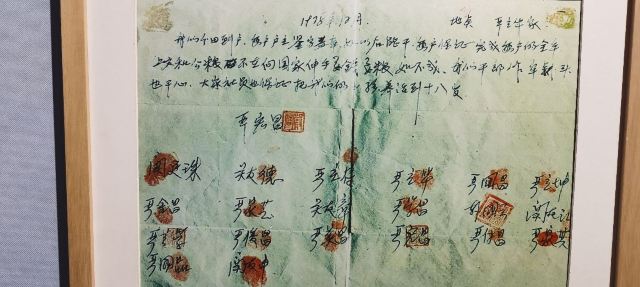 1978年12月 地点 严立华家
我们分田到户,每户户主签字盖章,如以后能干,每户保证完成每户的全年
上交和公粮,不在向国家伸手要钱要粮,如不成,我们干部作牢割头
也干心,大家社员也保证把我们的小孩养活到十八岁
严宏昌
关廷珠 关友德 严立符 严立华 严国昌 严立坤
严金昌 严家芝 关友章 严学昌 韩国云 关友江
严立学 严俊昌 严美昌 严宏昌 严付昌 严家其
严国品 关友申